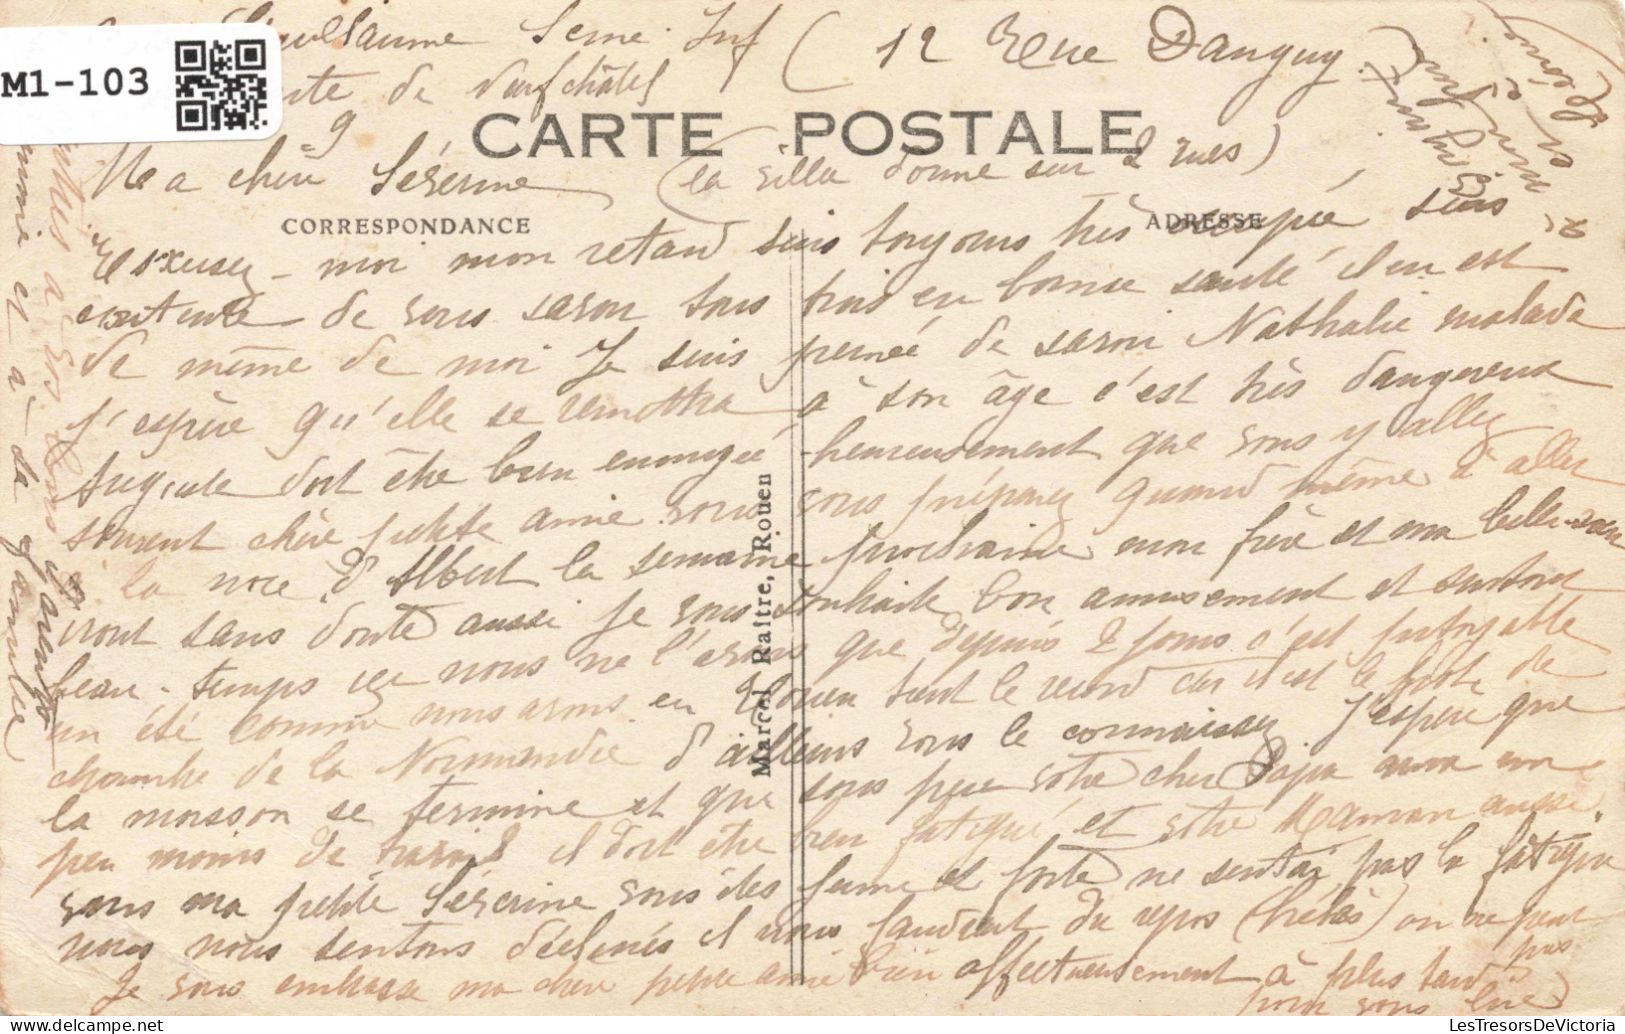 M1-103
Guillaume Seine Inf (12 Rue Danguy
de Neufchâtel
9
CARTE POSTALE
Ma chère Séverine (la villa donne sur 2 rues)
CORRESPONDANCE
ADRESSE
Excusez-moi mon retard suis toujours très occupée suis
contente de vous savoir tous trois en bonne santé il en est
de même de moi Je suis peinée de savoir Nathalie malade
j'espère qu'elle se remettra à son âge c'est très dangereux
doit être bien ennuyée heureusement que vous y allez
souvent chère petite amie vous vous préparez quand même à aller
à la noce d'Albert la semaine prochaine mon frère et ma belle-sœur
iront sans doute aussi je vous souhaite bon amusement et surtout
beau-temps ici nous ne l'avons que depuis 2 jours c'est pitoyable
un été comme nous avons en Rouen tient le record car il est le pot de
chambre de la Normandie d'ailleurs vous le connaissez J'espère que
la moisson se termine et que sous peu votre cher Papa aura un
peu moins de travail il doit être bien fatigué et votre Maman aussi
vous ma petite Séverine vous êtes jeune et forte ne sentez pas la fatigue
nous nous sentons déclinés il nous faudrait du repos (hélas) on ne peut
pas
Je vous embrasse ma chère petite amie bien affectueusement à plus tard
pour vous lire
Marcel Raitre, Rouen
à vos bons parents
amie et à la famille
LesTresorsDeVictoria.com